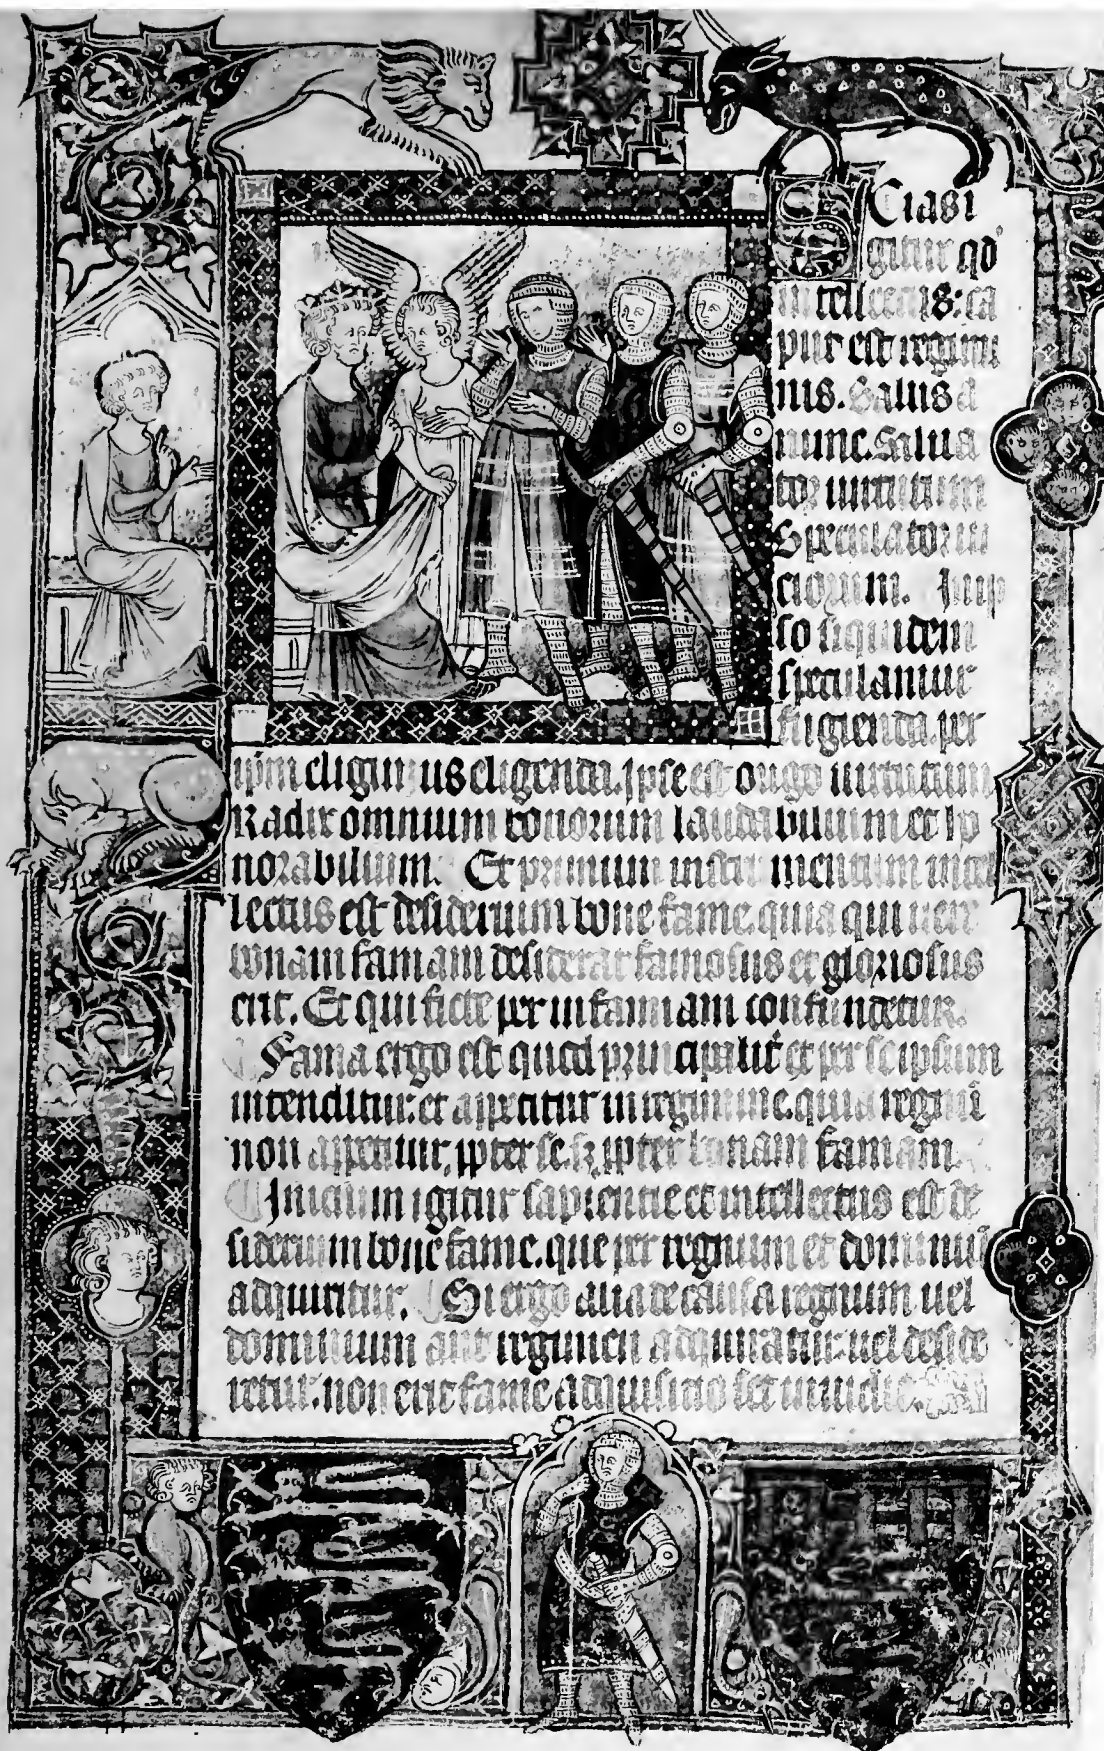 Scias i
gitur qd
intellectus: ca
put est regimi
nis. Salus a
nime. Salua
tor uirtutum
Speculator ui
ciorum. In ip
so siquidem
speculamur
fugienda. per
ipm eligimus eligenda. ipse est origo uirtutum
Radix omnium bonorum laudabilium et ho
norabilium. Et primum instrumentum intel
lectus est desiderium bone fame. quia qui uere
bonam famam desiderat famosus et gloriosus
erit. Et qui ficte per infamiam confundetur.
Fama ergo est quod principalit et per se ipsum
intenditur: et appetitur in regimine. quia regnū
non appetitur. ppter se. sz ppter bonam famam.
Inicium igitur sapientie et intellectus est de
siderium bone fame. que per regnum et dominiū
adquiritur. Si ergo alia de causa regnum uel
dominium aut regimen adquiratur: uel deside
retur: non erit fame adquisitio set inuidie.